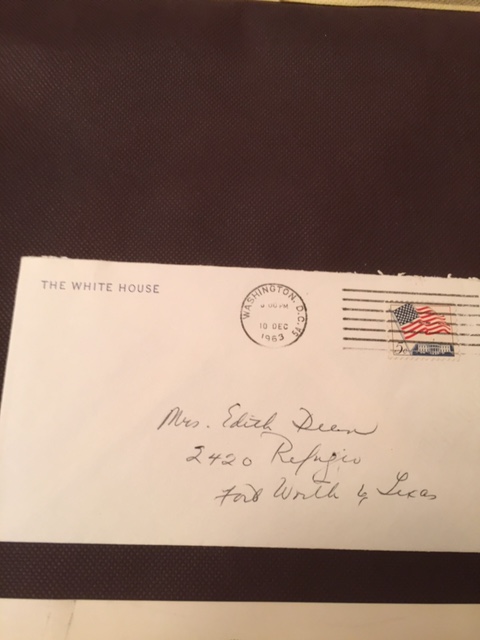 THE WHITE HOUSE
WASHINGTON, D.C.
PM
10 DEC
1963
5¢
Mrs. Edith Deen
2420 Refugio
Fort Worth 6, Texas